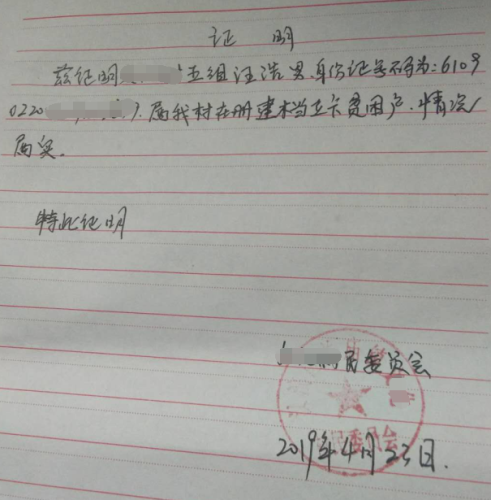 证 明
兹证明 五组汪浩男,身份证号码为:6109
0220 ,属我村在册建档立卡贫困户.情况
属实.
特此证明
民委员会
委员会
2019年4月23日.